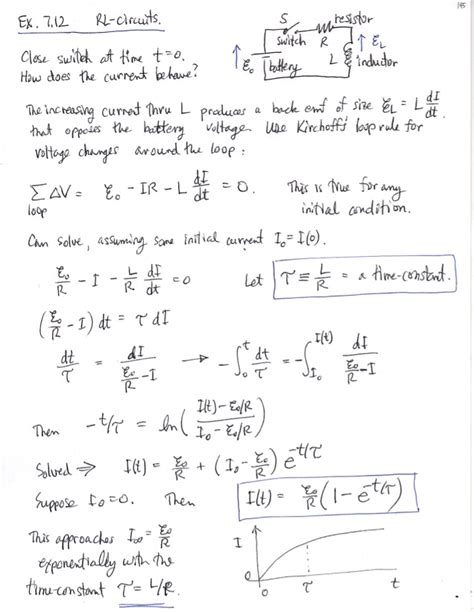 195
Ex. 7.12 RL-Circuits.
S
resistor
switch R
ℰ₀ battery L inductor ℰ_L
Close switch at time t=0.
How does the current behave?
The increasing current thru L produces a back emf of size ℰ_L = L dI/dt
that opposes the battery voltage. Use Kirchoff's loop rule for
voltage changes around the loop:
∑ ΔV = ℰ₀ - IR - L dI/dt = 0. This is true for any
loop
initial condition.
Can solve, assuming some initial current I₀ = I(0).
ℰ₀/R - I - L/R dI/dt = 0 Let τ ≡ L/R = a time-constant.
(ℰ₀/R - I) dt = τ dI
dt/τ = dI/(ℰ₀/R - I) → -∫₀^t dt/τ = -∫_{I₀}^{I(t)} dI/(ℰ₀/R - I)
Then -t/τ = ln( (I(t) - ℰ₀/R)/(I₀ - ℰ₀/R) )
Solved ⇒ I(t) = ℰ₀/R + (I₀ - ℰ₀/R) e^{-t/τ}
Suppose I₀=0. Then I(t) = ℰ₀/R (1 - e^{-t/τ})
This approaches I∞ = ℰ₀/R
exponentially with the
time-constant τ = L/R.
I
0
0 τ t